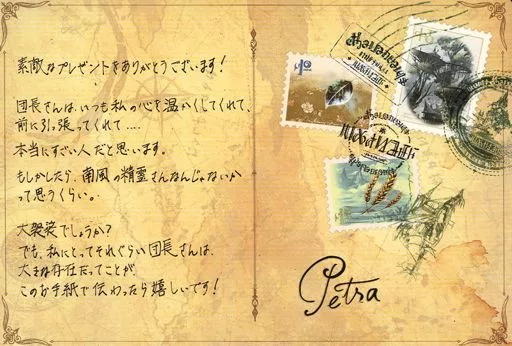 素敵なプレゼントをありがとうございます!
団長さんは、いつも私の心を温かくしてくれて、
前に引っ張ってくれて……
本当にすごい人だと思います。
もしかしたら、南風の精霊さんなんじゃないか
って思うくらい。
大袈裟でしょうか?
でも、私にとってそれぐらい団長さんは、
大きな存在だってことが
このお手紙で伝わったら嬉しいです!
Petra